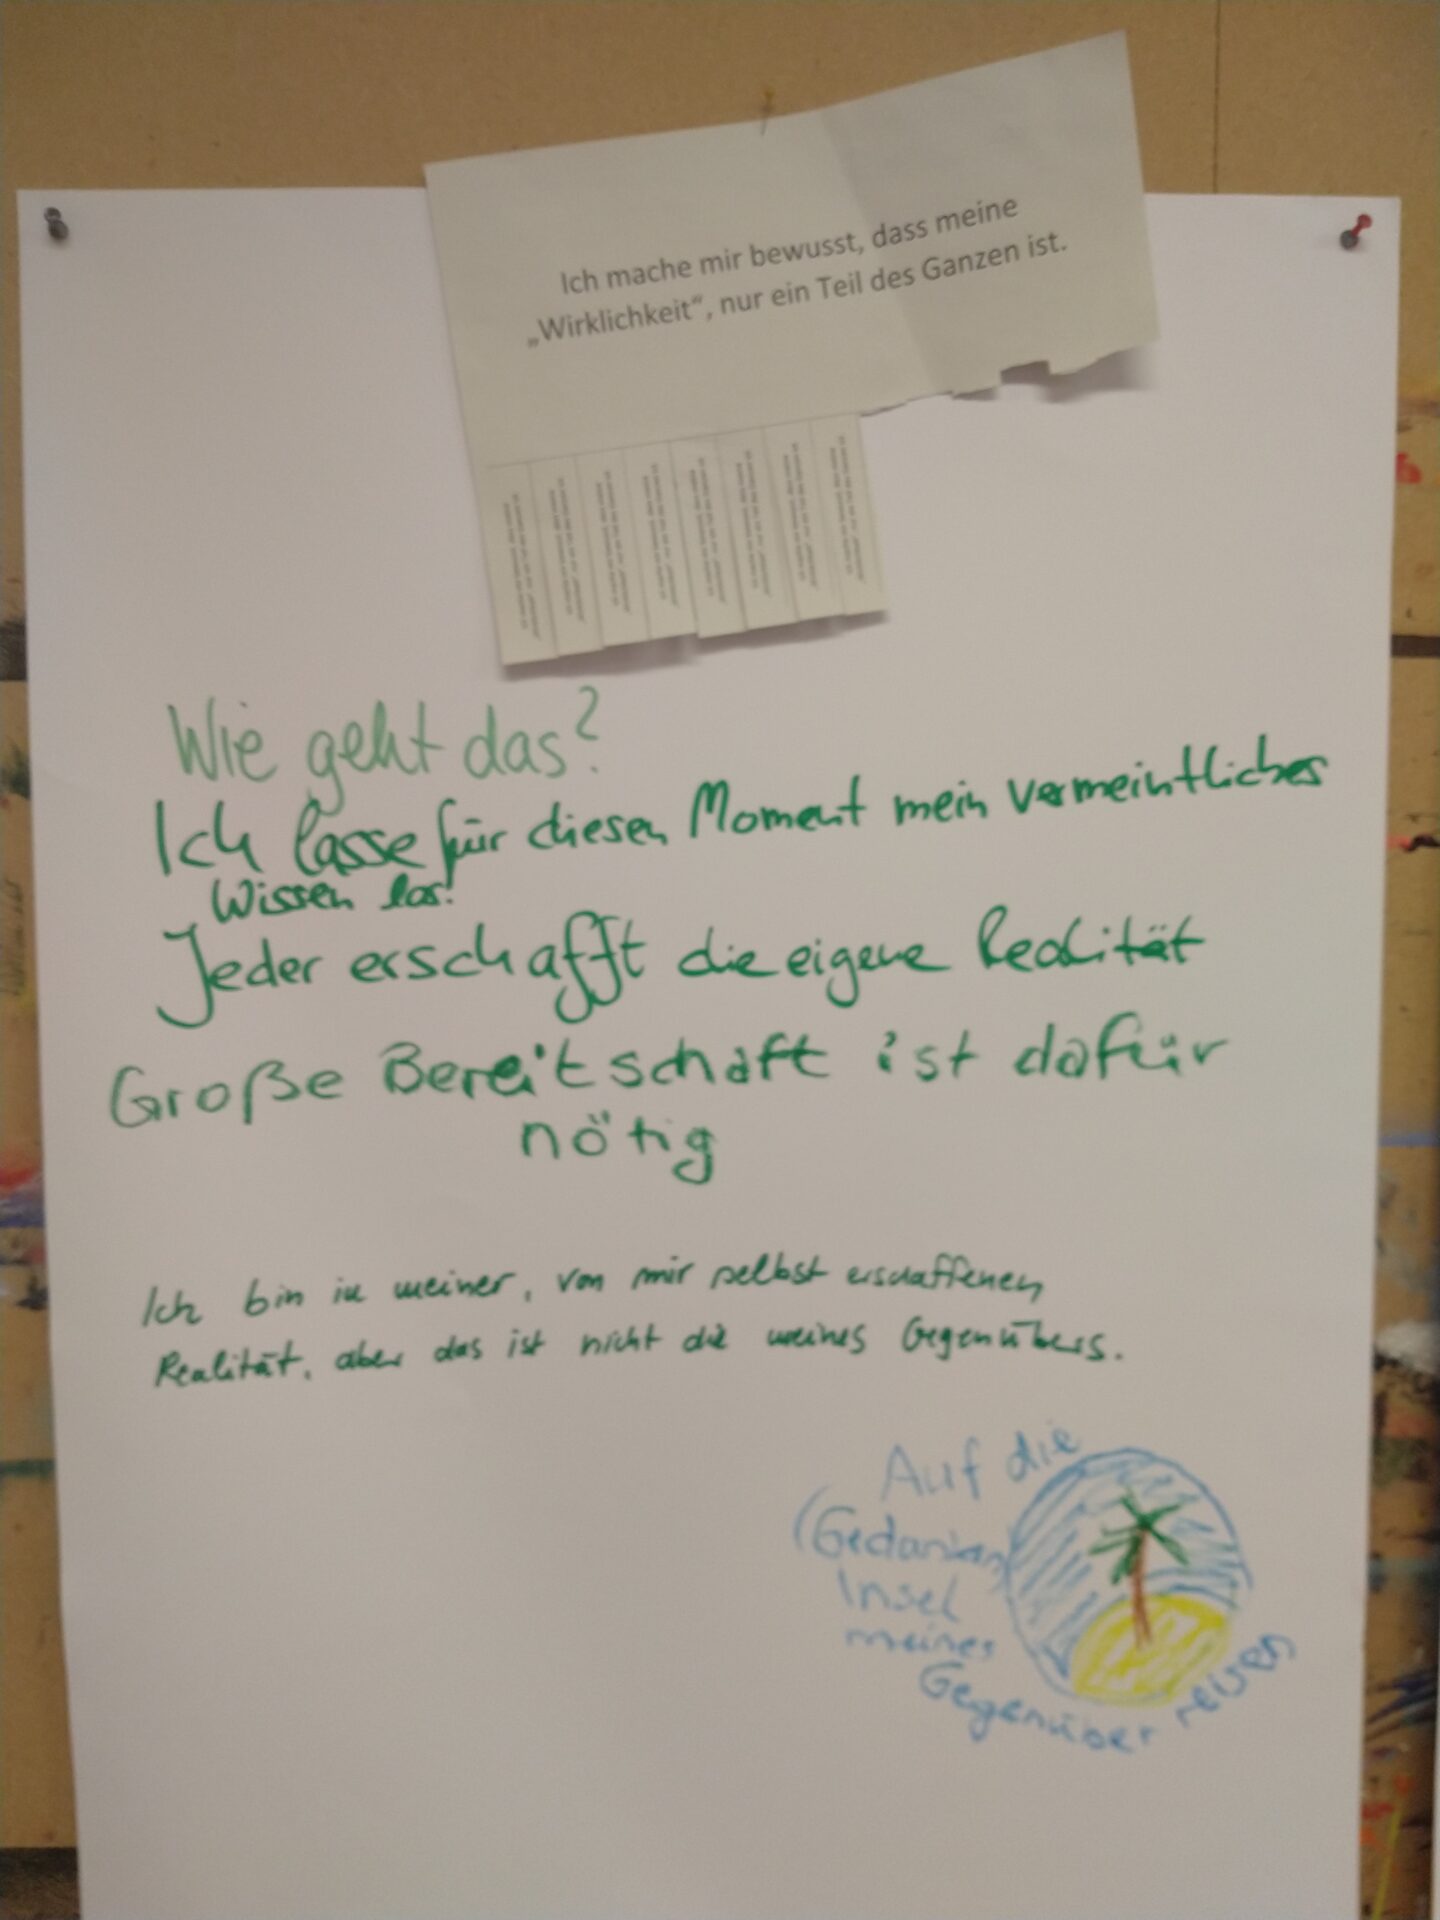 Ich mache mir bewusst, dass meine
„Wirklichkeit“, nur ein Teil des Ganzen ist.
Wie geht das?
Ich lasse für diesen Moment mein vermeintliches
Wissen los!
Jeder erschafft die eigene Realität
Große Bereitschaft ist dafür
nötig
Ich bin in meiner, von mir selbst erschaffenen
Realität, aber das ist nicht die meines Gegenübers.
Auf die
(Gedanken)
Insel
meines
Gegenüber reisen